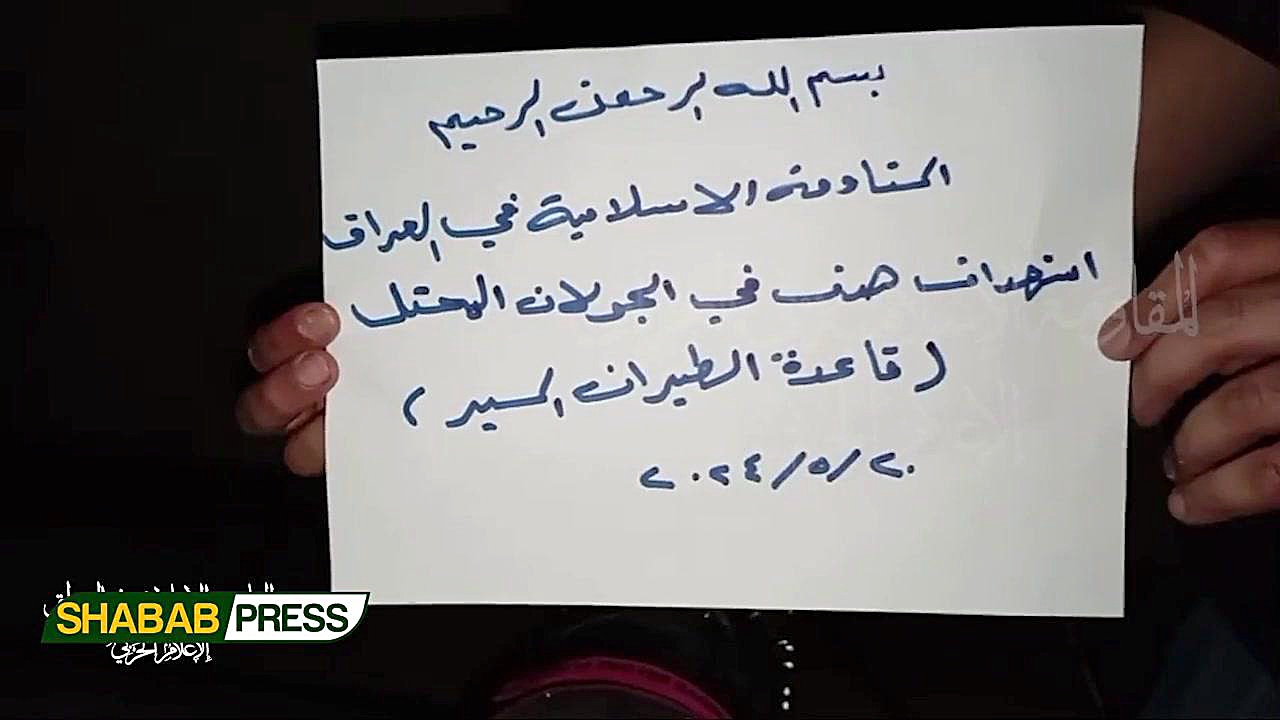 بسم الله الرحمن الرحيم
المقاومة الاسلامية في العراق
استهداف هدف في الجولان المحتل
(قاعدة الطيران المسير)
٢٠٢٤/٥/٢٠
المقاومة
SHABAB PRESS
الإعلام الحربي